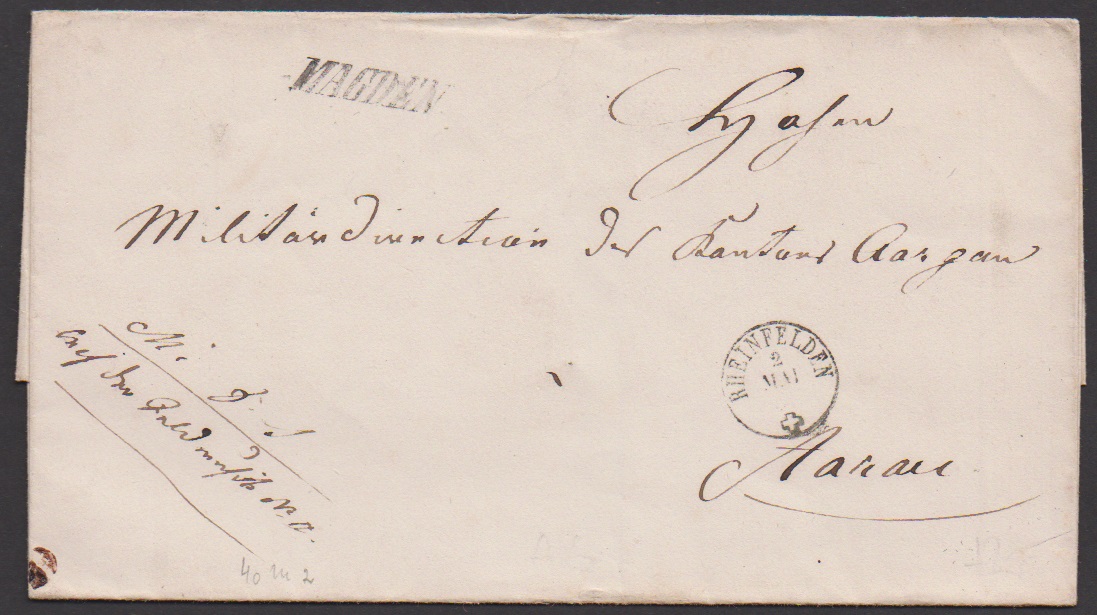 MAGDEN
Hohen
Militärdirection des Kantons Aargau
RHEINFELDEN
2
MAI
Aarau
M. D. S
auf den
40 m 2